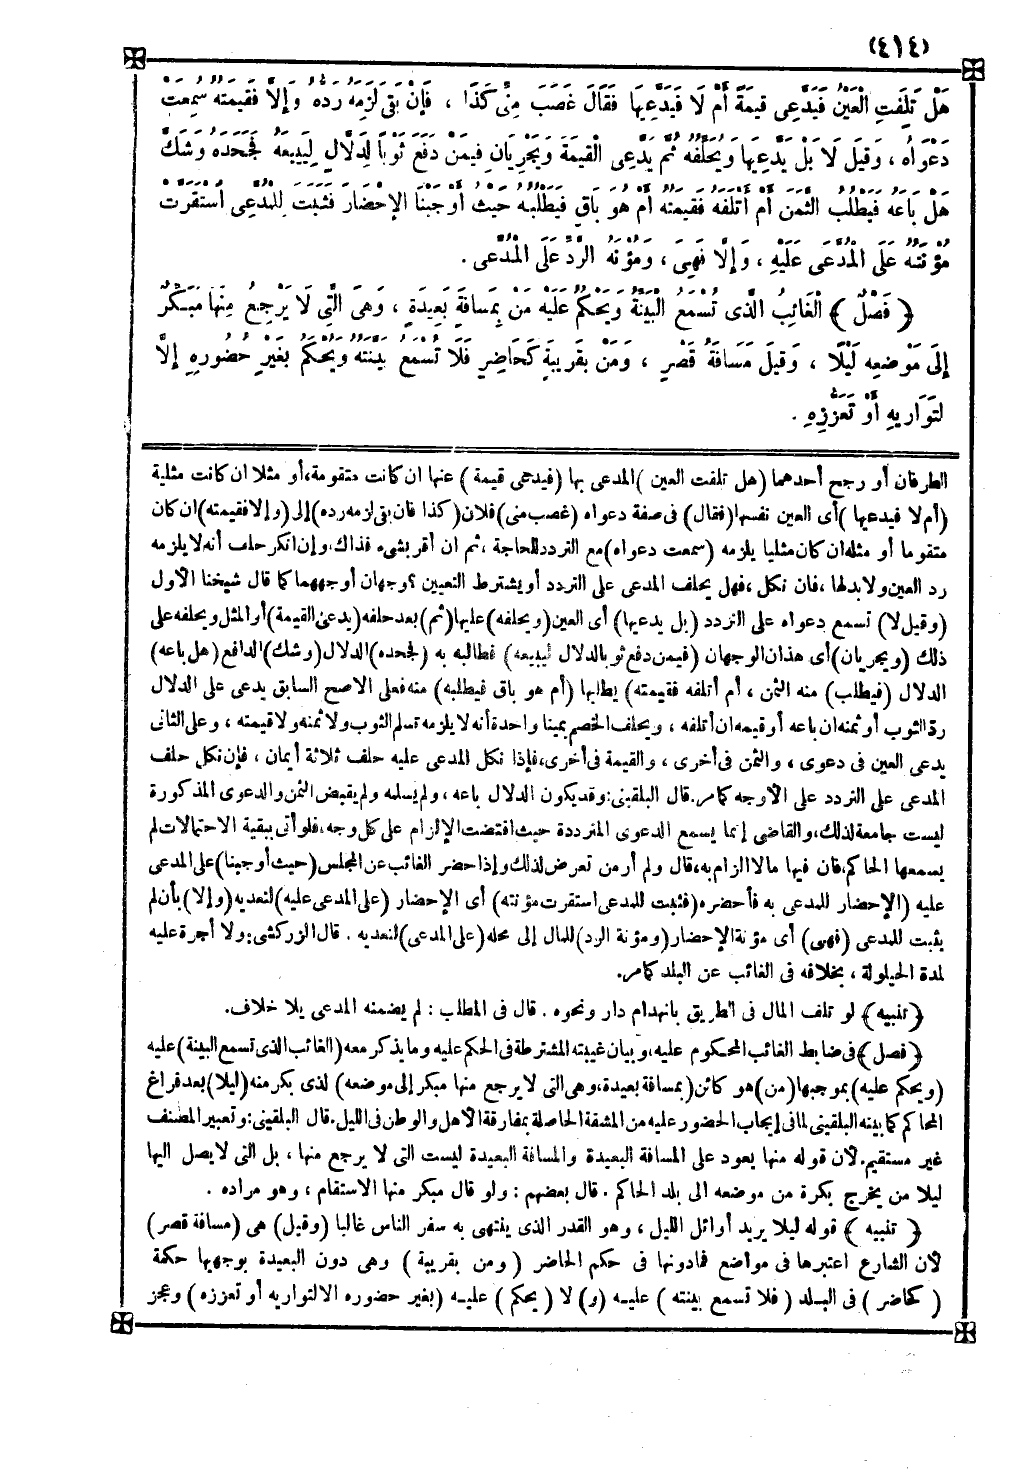 (٤١٤)
هَلْ تَلِفَتِ الْعَيْنُ فَيَدَّعِى قِيمَةً أَمْ لَا فَيَدَّعِيهَا فَقَالَ غَصَبَ مِنِّى كَذَا ، فَإِنْ بَقِىَ لَزِمَهُ رَدُّهُ وَإِلَّا فَقِيمَتُهُ سُمِعَتْ
دَعْوَاهُ ، وَقِيلَ لَا بَلْ يَدَّعِيهَا وَيُحَلِّفُهُ ثُمَّ يَدَّعِى الْقِيمَةَ وَيَجْرِيَانِ فِيمَنْ دَفَعَ ثَوْبًا لِدَلَّالٍ لِيَبِيعَهُ فَجَحَدَهُ وَشَكَّ
هَلْ بَاعَهُ فَيَطْلُبُ الثَّمَنَ أَمْ أَتْلَفَهُ فَقِيمَتَهُ أَمْ هُوَ بَاقٍ فَيَطْلُبُهُ حَيْثُ أَوْجَبْنَا الْإِحْضَارَ فَثَبَتَ لِلْمُدَّعِى اسْتَقَرَّتْ
مُؤْنَتُهُ عَلَى الْمُدَّعَى عَلَيْهِ ، وَإِلَّا فَهِىَ ، وَمُؤْنَةُ الرَّدِّ عَلَى الْمُدَّعِى .
﴿ فَصْلٌ ﴾ الْغَائِبُ الَّذِى تُسْمَعُ الْبَيِّنَةُ وَيُحْكَمُ عَلَيْهِ مَنْ بِمَسَافَةٍ بَعِيدَةٍ ، وَهِىَ الَّتِى لَا يَرْجِعُ مِنْهَا مُبَكِّرٌ
إِلَى مَوْضِعِهِ لَيْلًا ، وَقِيلَ مَسَافَةُ قَصْرٍ ، وَمَنْ بِقَرِيبَةٍ كَحَاضِرٍ فَلَا تُسْمَعُ بَيِّنَتُهُ وَيُحْكَمُ بِغَيْرِ حُضُورِهِ إِلَّا
لِتَوَارِيهِ أَوْ تَعَزُّزِهِ .
الطرفان أو رجح أحدهما (هل تلفت العين) المدعى بها (فيدعى قيمة) عنها ان كانت متقومة، أو مثلا ان كانت مثلية
(أم لا فيدعيها) أى العين نفسها (فقال) فى صفة دعواه (غصب منى) فلان (كذا فان بقى لزمه رده) إلى (وإلا فقيمته) ان كان
متقوما أو مثله ان كان مثليا يلزمه (سمعت دعواه) مع التردد للحاجة ، ثم ان أقر بشىء فذاك، وإن انكر حلف أنه لا يلزمه
رد العين ولا بدلها ، فان نكل ، فهل يحلف المدعى على التردد أو يشترط التعيين ؟ وجهان أوجههما كما قال شيخنا الأول
(وقيل لا) تسمع دعواه على التردد (بل يدعيها) أى العين (ويحلفه) عليها (ثم) بعد حلفه (يدعى القيمة) أو المثل ويحلفه على
ذلك (ويجريان) أى هذان الوجهان (فيمن دفع ثوبا لدلال ليبيعه) فطالبه به (فجحده) الدلال (وشك) الدافع (هل باعه)
الدلال (فيطلب) منه الثمن ، أم أتلفه فقيمته) يطلبها (أم هو باق فيطلبه) منه فعلى الاصح السابق يدعى على الدلال
رد الثوب أو ثمنه ان باعه أو قيمه ان أتلفه ، ويحلف الخصم يمينا واحدة أنه لا يلزمه تسلم الثوب ولا ثمنه ولا قيمته ، وعلى الثانى
يدعى العين فى دعوى ، والثمن فى أخرى ، والقيمة فى أخرى، فإذا نكل المدعى عليه حلف ثلاثة أيمان ، فإن نكل حلف
المدعى على التردد على الأوجه كما مر. قال البلقينى: وقد يكون الدلال باعه ، ولم يسلمه ولم يقبض الثمن والدعوى المذكورة
ليست جامعة لذلك، والقاضى إنما يسمع الدعوى المترددة حيث اقتضت الإلزام على كل وجه، فلو أتى ببقية الاحتمالات لم
يسمعها الحاكم، فان فيها ما لا الزام به، قال ولم أر من تعرض لذلك وإذا حضر الغائب عن المجلس (حيث أوجبنا) على المدعى
عليه (الإحضار للمدعى به فأحضره (فثبت للمدعى استقرت مؤنته) أى الإحضار (على المدعى عليه) لتعديه (وإلا) بأن لم
يثبت للمدعى (فهى) أى مؤنة الإحضار (ومؤنة الرد) للمال إلى محله (على المدعى) لتعديه . قال الزركشى: ولا أجرة عليه
لمدة الحيلولة ، بخلافه فى الغائب عن البلد كما مر.
﴿ تنبيه ﴾ لو تلف المال فى الطريق بانهدام دار ونحوه . قال فى المطلب : لم يضمنه المدعى بلا خلاف.
﴿ فصل ﴾ فى ضابط الغائب المحكوم عليه، وبيان غيبته المشترطة فى الحكم عليه وما يذكر معه (الغائب الذى تسمع البينة) عليه
(ويحكم عليه) بموجبها (من) هو كائن (بمسافة بعيدة، وهى التى لا يرجع منها مبكر إلى موضعه) لذى بكر منه (ليلا) بعد فراغ
المحاكم كما بينه البلقينى لما فى إيجاب الحضور عليه من المشقة الحاصلة بمفارقة الأهل والوطن فى الليل. قال البلقينى: وتعبير المصنف
غير مستقيم. لأن قوله منها يعود على المسافة البعيدة والمسافة البعيدة ليست التى لا يرجع منها ، بل التى لا يصل اليها
ليلا من يخرج بكرة من موضعه الى بلد الحاكم . قال بعضهم : ولو قال مبكر منها الاستقام ، وهو مراده .
﴿ تنبيه ﴾ قوله ليلا يريد أوائل الليل ، وهو القدر الذى ينتهى به سفر الناس غالبا (وقيل) هى (مسافة قصر)
لأن الشارع اعتبرها فى مواضع فمادونها فى حكم الحاضر (ومن بقريبة) وهى دون البعيدة بوجهيها حكمة
(كحاضر) فى البلد (فلا تسمع بينته) عليه (و) لا (يحكم) عليه (بغير حضوره الا لتواريه أو تعززه) وعجز